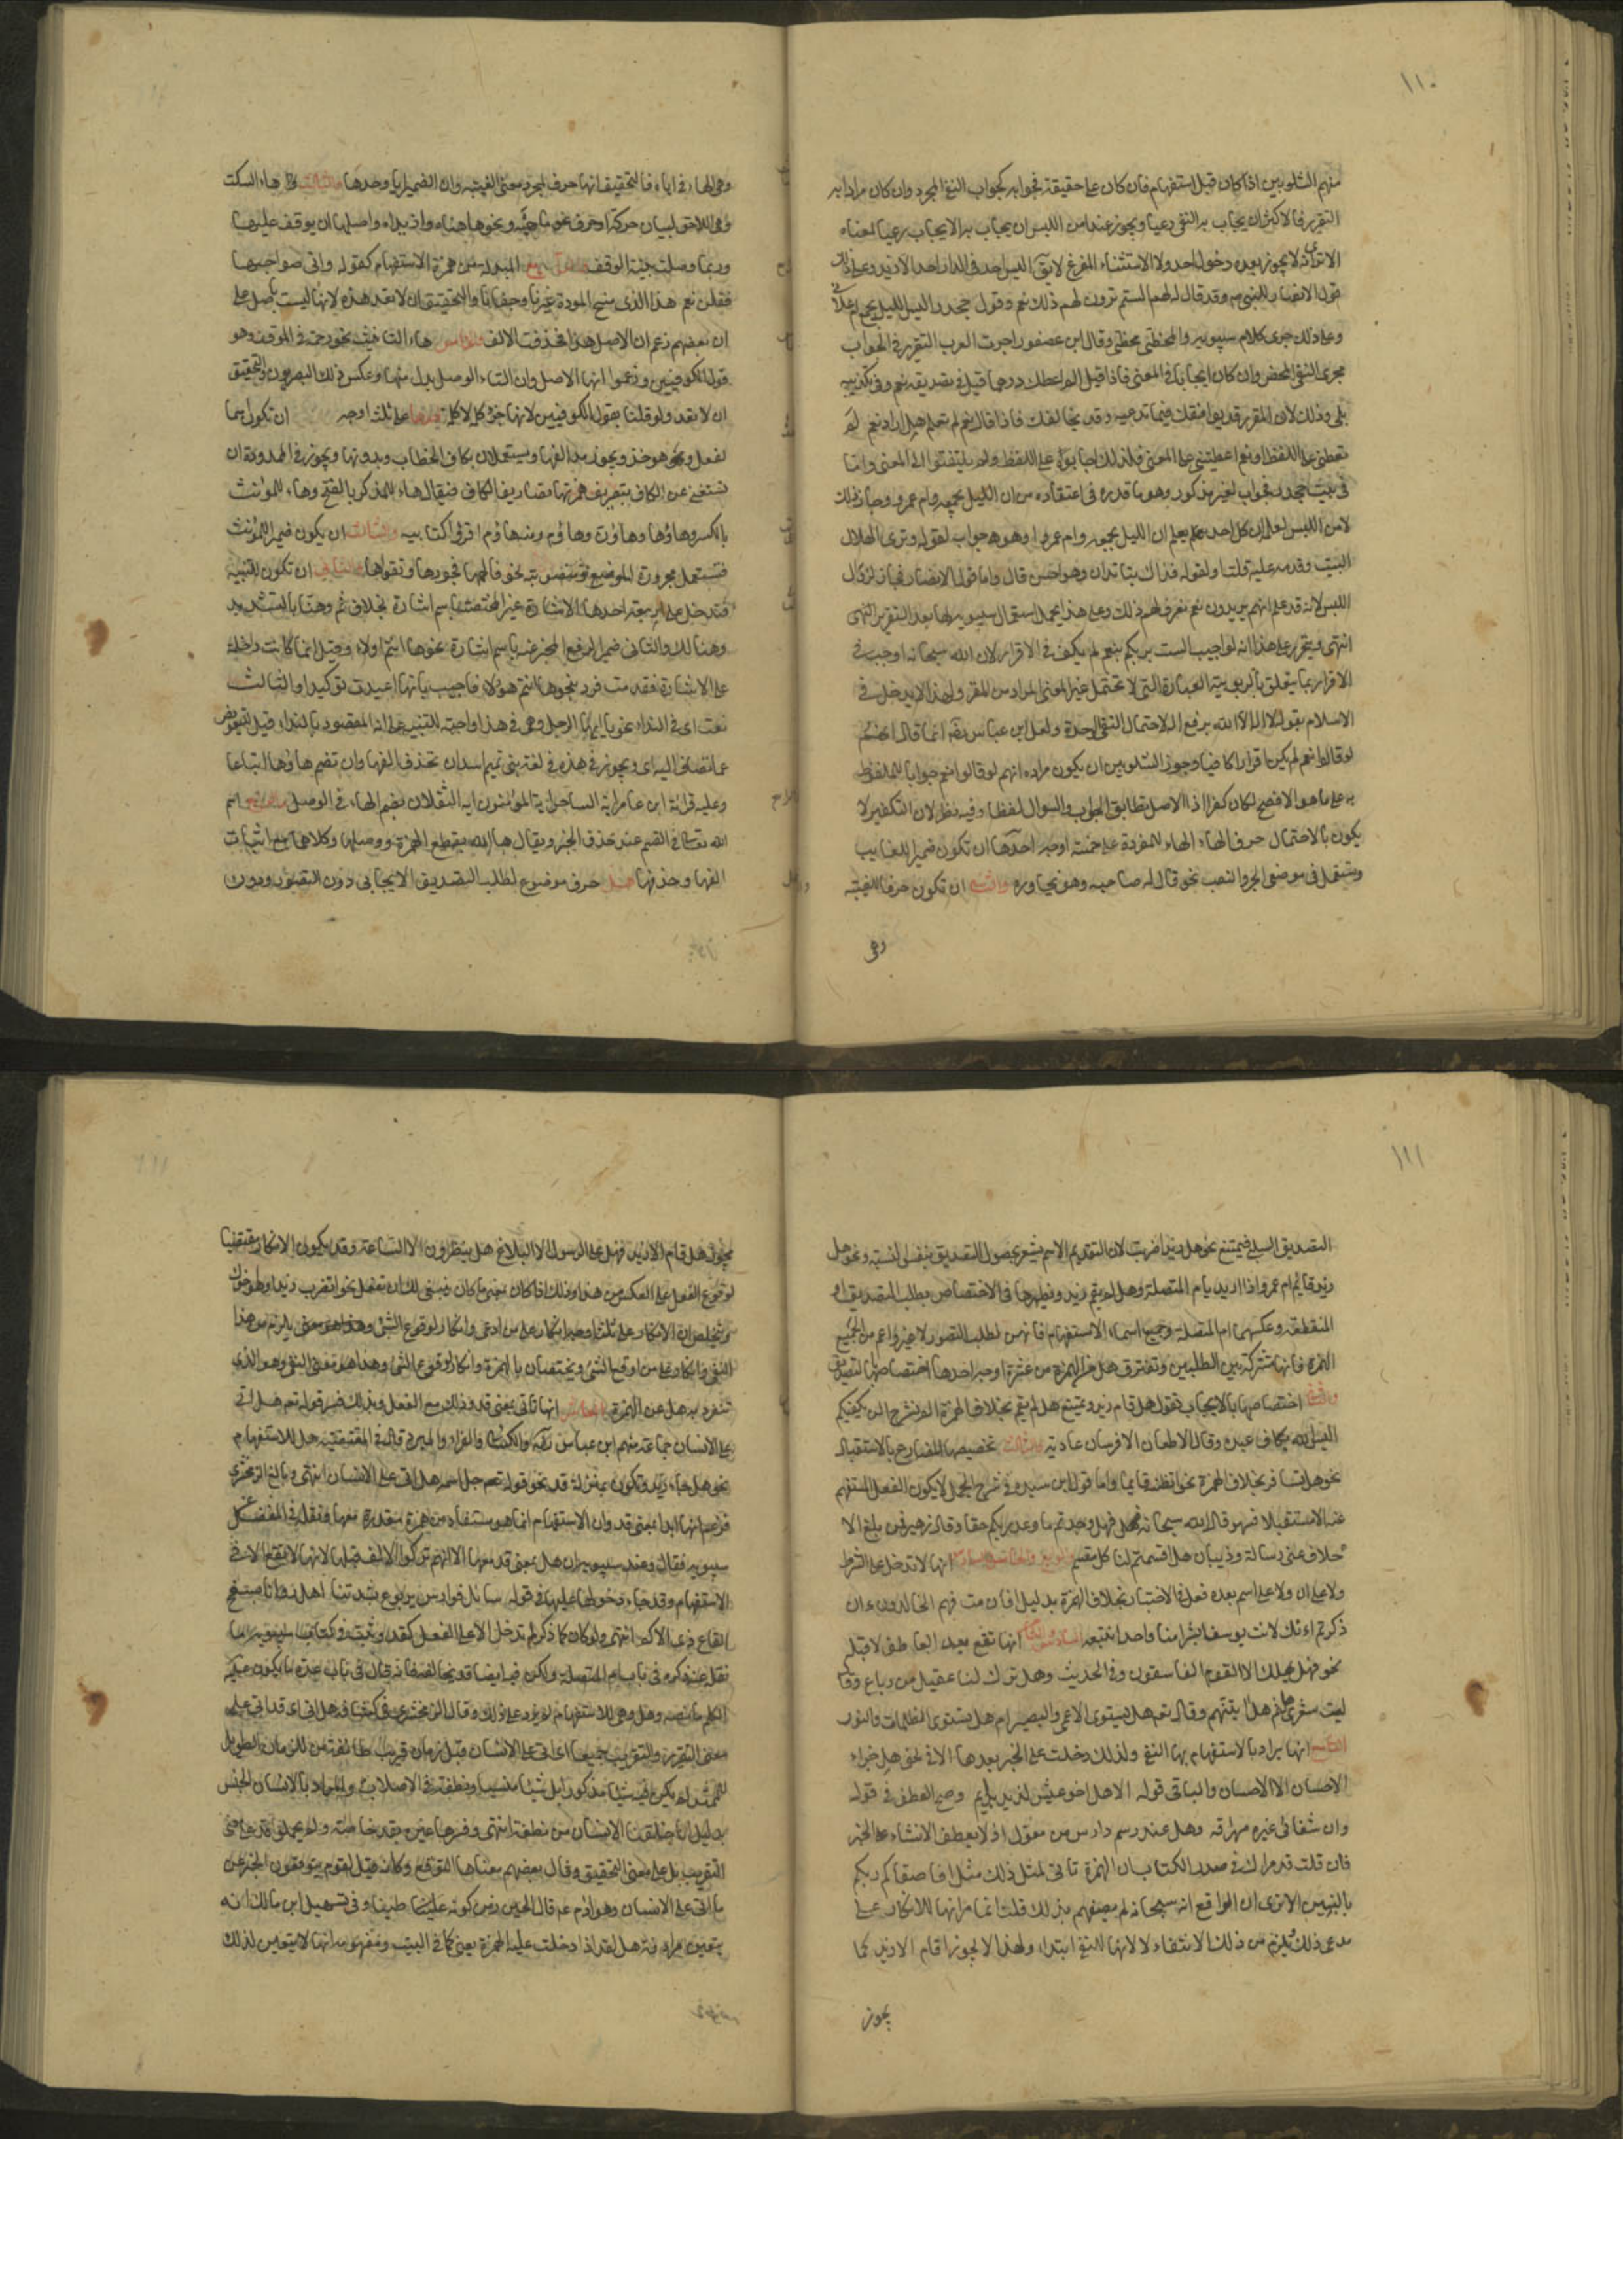 ١١٠
منهم الشلوبين اذا كان قبل استفهام فان كان على حقيقته فجوابه كجواب النفي المجرد وان كان مرادا به
التقرير فالاكثر ان يجاب به النفي رعيا ويجوز عند امن اللبس ان يجاب به الايجاب رعيا لمعناه
الا ترى لا يجوز بعده دخول احد ولا الاستثناء المفرغ لا يق اليس احد في الدار احد الا زيد وعلى ذلك
قول الانصار للنبي وقد قال لهم الستم ترون لهم ذلك نعم وقول جحدر اليس الليل يجمع ام
وعلى ذلك جرى كلام سيبويه والمخطئ مخطئ وقال ابن عصفور اجرت العرب التقرير في الجواب
مجرى النفي المحض وان كان ايجابا في المعنى فاذا قيل الم اعطك درهما قيل في تصديقه نعم وفي تكذيبه
بلى وذلك لان المقرر قد يوافقك فيما تدعيه وقد يخالفك فاذا قال نعم لم تعلم هل اراد نعم لم
تعطني على اللفظ او نعم اعطيتني على المعنى فلذلك اجابوه على اللفظ ولم يلتفتوا الى المعنى واما
في بيت جحدر فجواب لغير مذكور وهو ما قدره في اعتقاده من ان الليل يجمعه وام عمرو وجاز ذلك
لامن اللبس لعلمه ان كل احد يعلم ان الليل يجمعه وام عمرو او هو جواب لقوله وترى الهلال
البيت وقدمه عليه قلت او لقوله فذاك بنا تدان وهو احسن قال واما قول الانصار فجاز لزوال
اللبس لانه قد علم انهم يريدون نعم نعرف لهم ذلك وعلى هذا يحمل استعمال سيبويه لها بعد التقرير انتهى
انتهى ويتحرر على هذا انه لو اجيب الست بربكم بنعم لم يكف في الاقرار لان الله سبحانه اوجب في
الاقرار بما يتعلق بالربوبية العبارة التي لا تحتمل غير المعنى المراد من المقر ولهذا لا يدخل في
الاسلام بقوله لا اله الا الله برفع اله لاحتمال النفي الوحدة ولعل ابن عباس رضه انما قال انهم
لو قالوا نعم لم يكن اقرارا كافيا وجوز الشلوبين ان يكون مراده انهم لو قالوا نعم جوابا للملفوظ
به على ما هو الافصح لكان كفرا اذ الاصل تطابق الجواب والسوال لفظا وفيه نظر لان التكفير لا
يكون بالاحتمال حرف الهاء الهاء المفردة على خمسة اوجه احدها ان تكون ضميرا للغايب
وتستعمل في موضعي الجر والنصب نحو قال له صاحبه وهو يحاوره والثاني ان تكون حرفا للغيبة
وهي
وهي الهاء في اياه فالتحقيق انها حرف لمجرد معنى الغيبة وان الضمير ايا وحدها والثالث هاء السكت
وهي اللاحقة لبيان حركة او حرف نحو ما هيه ونحو ها هناه وا زيداه واصلها ان يوقف عليها
وربما وصلت بنية الوقف والرابع المبدلة من همزة الاستفهام كقوله واتى صواحبها
فقلن هذا الذي منح المودة غيرنا وجفانا والتحقيق ان لا تعد هذه لانها ليست باصل على
ان بعضهم زعم ان الاصل هذا فحذفت الالف والخامس هاء التانيث نحو رحمه في الوقف وهو
قول الكوفيين وزعموا انها الاصل وان التاء في الوصل بدل منها وعكس ذلك البصريون والتحقيق
ان لا تعد ولو قلنا بقول الكوفيين لانها جزء كلمة لا كلمة ها على ثلثة اوجه ان تكون اسما
لفعل وهو خذ ويجوز مد الفها ويستعملان بكاف الخطاب وبدونها ويجوز في الممدودة ان
تستغنى عن الكاف بتصريف همزتها تصاريف الكاف فيقال هاء للمذكر بالفتح وهاء للمؤنث
بالكسر وهاؤما وهاؤن وهاؤم ومنه هاؤم اقرؤا كتابيه والثاني ان يكون ضميرا للمؤنث
فتستعمل مجرورة الموضع ومنصوبته نحو فالهمها فجورها وتقواها والثالث ان تكون للتنبيه
فتدخل على اربعة احدها الاشارة غير المختصة باسم اشارة بخلاف ثم وهنا بالتشديد
وهنالك والثاني ضمير الرفع المخبر عنه باسم اشارة نحو ها انتم اولاء وقيل انما كانت داخلة
على الاشارة فقدمت فرد بنحو ها انتم هؤلاء فاجيب بانها اعيدت توكيدا والثالث
نعت اي في النداء نحو يا ايها الرجل وهي في هذا واجبة للتنبيه على انه المقصود بالنداء قيل للتعويض
عما تضاف اليه اي ويجوز في هذه في لغة بني تميم اسد ان تحذف الفها وان تضم هاؤها اتباعا
وعليه قرائة ابن عامر ايه الساحر ايه المؤمنون ايه الثقلان بضم الهاء في الوصل والرابع اسم
الله تعالى في القسم عند حذف الحرف ويقال ها الله بقطع الهمزة ووصلها وكلاهما مع اثبات
الفها وحذفها هل حرف موضوع لطلب التصديق الايجابي دون التصور ودون
١١١
التصديق السلبي فيمتنع نحو هل زيدا ضربت لان التقديم الاسم يشعر بحصول التصديق بنفس النسبة ونحو هل
زيد قايم ام عمرو اذا اريد بام المتصلة وهل لم يقم زيد ونظيرها في الاختصاص بطلب التصديق ام
المنقطعة وعكسها ام المتصلة وجميع اسماء الاستفهام فانهن لطلب التصور لا غير واعم من الجميع
الهمزة فانها مشتركة بين الطلبين وتفترق هل من الهمزة من عشرة اوجه احدها اختصاصها بالتصديق
والثاني اختصاصها بالايجاب تقول هل قام زيد ويمتنع هل لم يقم بخلاف الهمزة الم نشرح الن يكفيكم
اليس الله بكاف عبده وقال الا طعان الا فرسان عادية والثالث تخصيصها المضارع بالاستقبال
نحو هل تسافر بخلاف الهمزة نحو اتظنه قايما واما قول ابن سيده في شرح الجمل لا يكون الفعل المستفهم
عنه الا مستقبلا فسهو قال الله سبحانه فهل وجدتم ما وعد ربكم حقا وقال زهير فمن مبلغ الا
حلاف عني رسالة وذبيان هل اقسمتم كل مقسم والرابع والخامس والسادس انها لا تدخل على الشرط
ولا على ان ولا على اسم بعده فعل في الاختيار بخلاف الهمزة بدليل افان مت فهم الخالدون ءان
ذكرتم اءنك لانت يوسف ابشرا منا واحدا نتبعه انها تقع بعد العاطف لا قبله
نحو فهل يهلك الا القوم الفاسقون وفي الحديث وهل ترك لنا عقيل من رباع وقال
ليت شعري هل ثم هل اتينهم وقال تعم هل يستوي الاعمى والبصير ام هل يستوي الظلمات والنور
التاسع انها يراد بالاستفهام بها النفي ولذلك دخلت على الخبر بعدها الا في نحو هل جزاء
الاحسان الا الاحسان والباقي قوله الا هل اخو عيش لذيذ بدايم وصح العطف في قوله
وان شفائي عبرة مهراقه وهل عند رسم دارس من معول اذ لا يعطف الانشاء على الخبر
فان قلت قد مر لك في صدر الكتاب ان الهمزة تاتي لمثل ذلك مثل افاصفاكم ربكم
بالبنين الا ترى ان الواقع انه سبحانه لم يصفهم بذلك قلت انما مر انها للانكار على
مدعي ذلك ويلزم من ذلك الانتفاء لا انها للنفي ابتداء ولهذا لا يجوز اقام الا زيد كما
يجوز
يجوز هل قام الا زيد فهل على الرسول الا البلاغ هل ينظرون الا الساعة وقد يكون الانكار مقتضيا
لوقوع الفعل على العكس من هذا وذلك اذا كان بمعنى ما كان ينبغي لك ان تفعل نحو اتضرب زيدا وهو اخوك
ويتلخص ان الانكار على ثلثة اوجه انكار على من ادعى وانكار لوقوع الشئ
النفي وانكار على من اوقع الشئ ويختصان بالهمزة وانكار لوقوع الشئ وهذا هو معنى النفي وهو الذي
تنفرد به هل عن الهمزة والعاشر انها تاتي بمعنى قد وذلك مع الفعل وبذلك فسر قوله تعم هل اتى
على الانسان جماعة منهم ابن عباس رضه والكسائي والفراء والمبرد قال في المقتضب هل للاستفهام
نحو هل جاء زيد وتكون بمنزلة قد نحو قوله تعم جل اسمه هل اتى على الانسان انتهى وبالغ الزمخشري
فزعم انها ابدا بمعنى قد وان الاستفهام انما هو مستفاد من همزة مقدرة معها ونقله في المفصل عن
سيبويه فقال وعند سيبويه ان هل بمعنى قد الا انهم تركوا الالف قبلها لانها لا تقع الا في
الاستفهام وقد جاء دخولها عليها في قوله سائل فوارس يربوع بشدتنا اهل راونا بسفح
القاع ذي الاكم انتهى ولو كان كما ذكر لم تدخل الا على الفعل كقد وثبت في كتاب سيبويه ما
نقله عنه ذكره في باب ام المتصلة ولكن فيه ايضا قد يخالفه فانه قال في باب عدة ما يكون عليه
الكلم ما نصه وهل وهي للاستفهام لم يزد على ذلك وقال الزمخشري في كشافه هل اتى اي قد اتى على
معنى التقرير والتقريب جميعا اي اتى على الانسان قبل زمان قريب طائفة من الزمان الطويل
الممتد لم يكن فيه شيئا مذكورا بل شيئا منسيا ونطفة في الاصلاب والمراد بالانسان الجنس
بدليل انا خلقنا الانسان من نطفة انتهى وفسرها غيره بقد خاصة ولم يحملوا قد على معنى
التقريب بل على معنى التحقيق وقال بعضهم معناها التوقع وكانه قيل لقوم يتوقعون الخبر عن
ما اتى على الانسان وهو ادم عم قال الحين زمن كونه طينا وفي تسهيل ابن مالك انه
يتعين مرادفة هل لقد اذا دخلت عليها الهمزة يعني كما في البيت ومفهومه انها لا يتعين لذلك